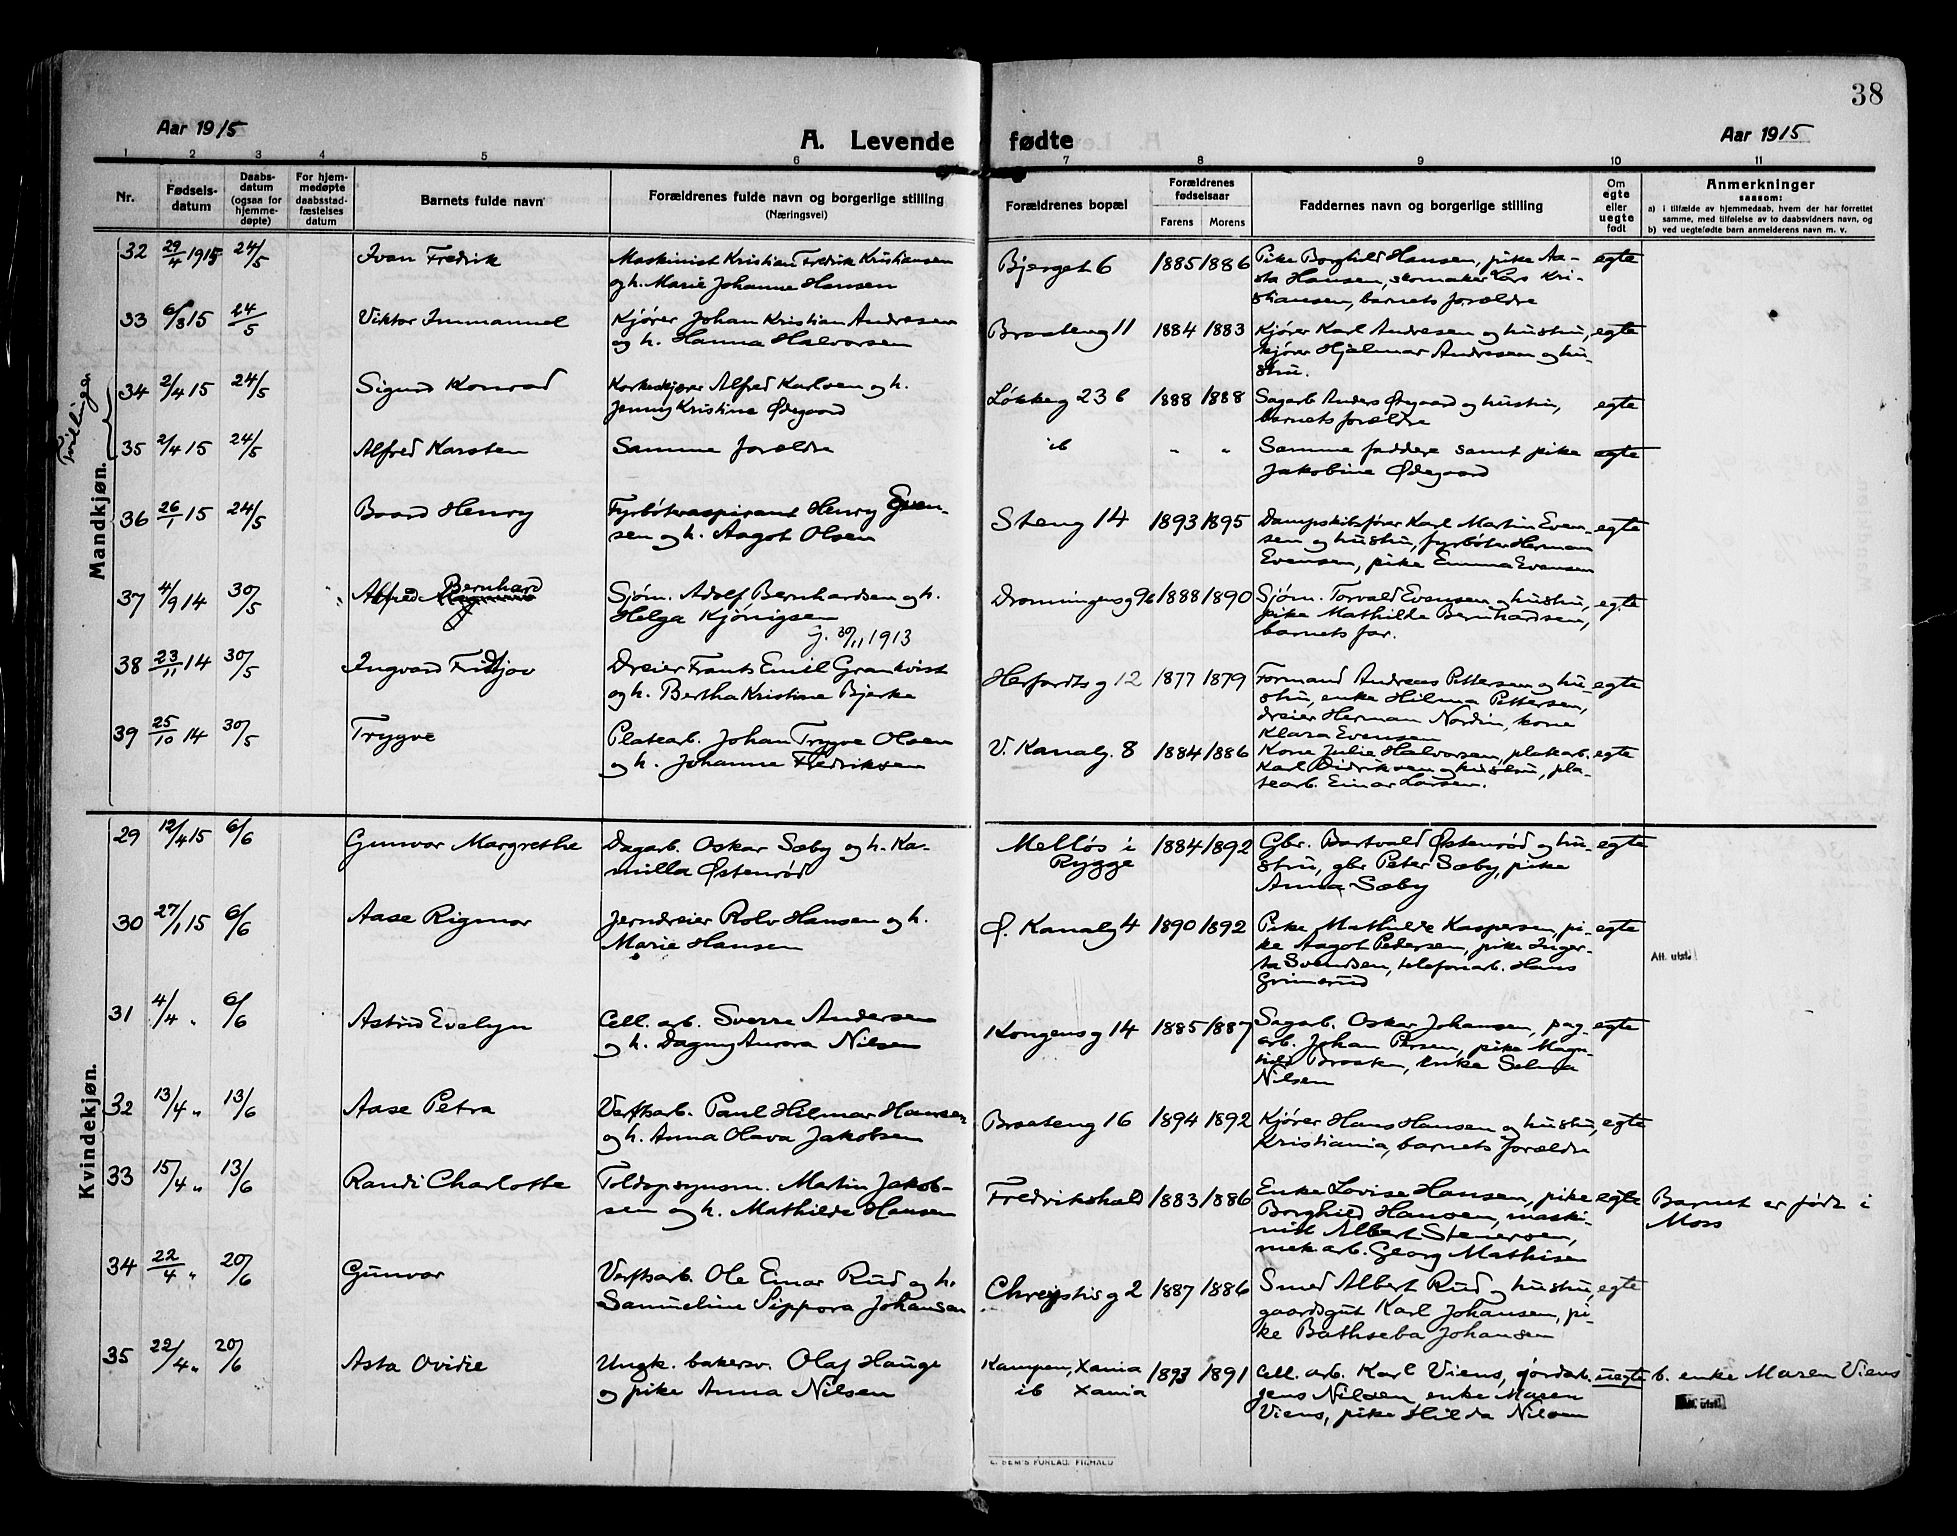 38
Aar 1915
A. Levende fødte
Aar 1915
1 2 3 4 5 6 7 8 9 10 11
Nr.
Fødsels-
datum
Daabs-
datum
(ogsaa for
hjemme-
døpte)
For hjem-
medøpte
daabsstad-
fæstelses
datum
Barnets fulde navn
Forældrenes fulde navn og borgerlige stilling
(Næringsvei)
Forældrenes bopæl
Forældrenes
fødselsaar
Farens Morens
Faddernes navn og borgerlige stilling
Om
egte
eller
uegte
født
Anmerkninger
saasom:
a) i tilfælde av hjemmedaab, hvem der har forrettet
samme, med tilføielse av to daabsvidners navn, og
b) ved uegtefødte barn anmelderens navn m. v.
Mandkjøn.
Tvillinger
32 29/4 1915 24/5 Ivan Fredrik Maskinist Kristian Fredrik Kristiansen Bjerget 6 1885 1886 Pike Borghild Hansen, pike Aa- egte
og h. Marie Johanne Hansen sta Hansen, skomaker Lars Kri-
stiansen, barnets forældre
33 6/3 15 24/5 Viktor Immanuel Kjører Johan Kristian Andresen Braateng 11 1884 1883 Kjører Karl Andresen og hustru, egte
og h. Hanna Halvorsen kjører Hjalmar Andresen og hu-
stru.
34 2/4 15 24/5 Sigurd Konrad Korkeskjærer Alfred Karlsen og h. Løkkeg 23 b 1888 1888 Sagarb Anders Ødegaard og hustru, egte
Jenny Kristine Ødegaard barnets forældre
35 2/4 15 24/5 Alfred Karsten Samme forældre ib " " Samme faddere samt pike egte
Jakobine Ødegaard
36 26/1 15 24/5 Baard Henry Fyrbøteraspirant Henry Even- Steng 14 1893 1895 Dampskibsfører Karl Martin Even- egte
sen og h. Aagot Olsen sen og hustru, fyrbøter Herman
Evensen, pike Emma Evensen
37 4/9 14 30/5 Alfred Bernhard Sjøm. Adolf Bernhardsen og h. Dronningensg 9b 1888 1890 Sjøm. Torvald Evensen og hustru, egte
Helga Kjønigsen pike Mathilde Bernhardsen,
g. 30/11 1913 barnets far.
38 23/11 14 30/5 Ingvard Fridtjov Dreier Frants Emil Grankvist Herfordts g 12 1877 1879 Formand Andreas Pettersen og hu- egte
og h. Bertha Kristine Bjerke stru, enke Hilma Pettersen,
dreier Herman Nordin, kone
Klara Evensen
39 25/10 14 30/5 Trygve Platearb. Johan Trygve Olsen V. Kanalg. 8 1884 1886 Kone Julie Halvorsen, platearb. egte
og h. Johanne Fredriksen Karl Didriksen og hustru, pla-
tearb. Einar Larsen.
Kvindekjøn.
29 12/4 15 6/6 Gunvor Margrethe Dagarb. Oskar Sæby og h. Ka- Melløs i 1884 1892 Gbr. Bartvald Østenrød og hu- egte
milla Østenrød Rygge stru, gbr Peter Sæby, pike
Anna Sæby
30 27/1 15 6/6 Aase Rigmor Jerndreier Rolv Hansen og h. Ø. Kanalg 4 1890 1892 Pike Mathilde Kaspersen, pi- egte
Marie Hansen ke Aagot Pedersen, pike Inger-
ta Svendsen, telefonarb. Hans Att. utst.
Grimsrud
31 4/4 " 6/6 Astrid Evelyn Cell. arb. Sverre Andersen Kongens g 14 1885 1887 Sagarb. Oskar Johansen, pag- egte
og h. Dagny Aurora Nilsen arb. Johan Persen, pike Magn-
hild Braaten, enke Selma
Nilsen
32 13/4 " 13/6 Aase Petra Verftsarb. Paul Hilmar Hansen Braateng 16 1894 1892 Kjører Hans Hansen og hustru, egte
og h. Anna Olava Jakobsen Kristiania, barnets forældre
33 15/4 " 13/6 Randi Charlotte Toldopsynsm. Martin Jakob- Fredrikshald 1883 1886 Enke Lovise Hansen, pike egte Barnet er født i
sen og h. Mathilde Hansen Borghild Hansen, maski- Moss
nist Albert Stenersen,
mek arb. Georg Mathisen
34 22/4 " 20/6 Gunvor Verftsarb. Ole Einar Rud og h. Chrystis g 2 1887 1886 Smed Albert Rud og hustru, egte
Samueline Sippora Johansen gaardsgut Karl Johansen, pi
ke Bathseba Johansen
35 22/4 " 20/6 Asta Ovidie Ungk. bakersv. Olaf Hauge Kampen, Xania 1893 1891 Cell. arb. Karl Viens, jordarb. uegte b. enke Maren Viens
og pike Anna Nilsen ib Xania Jens Nilsen, enke Maren
Viens, pike Hilda Nilsen Att. utst.
E. SEM'S FORLAG, FR.HALD